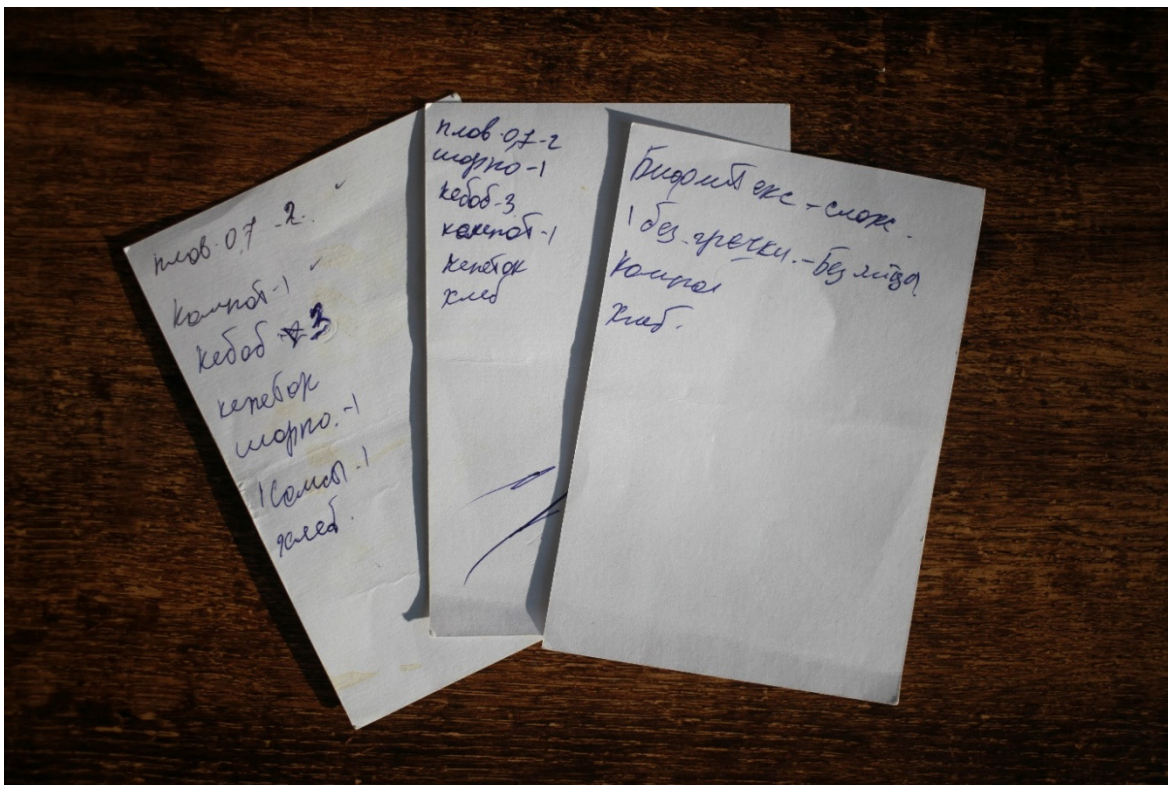 плов 0,7 - 2.
компот - 1
кебоб 3
кепеток
шорпо. - 1
1 Самсы - 1
хлеб.
плов 0,7 - 2
шорпо - 1
кебоб - 3
компот - 1
кепеток
хлеб
Бифштекс - слож.
1 без гречки. - Без яйца
Компот
Хлеб.